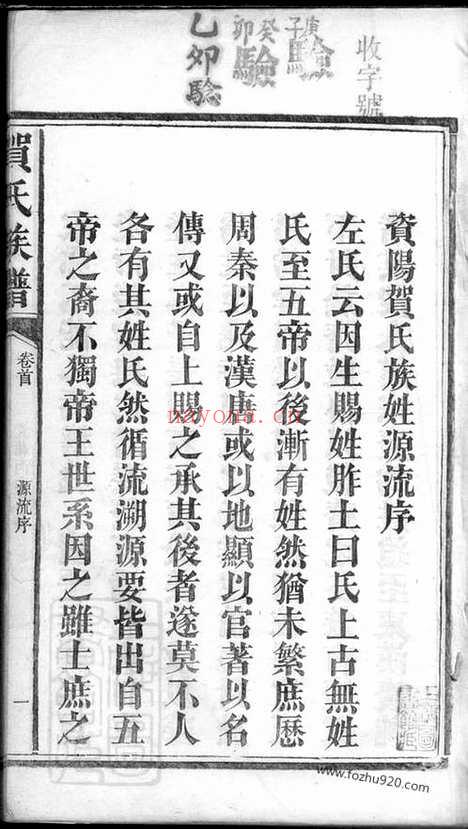 收字號
庚子驗
癸卯驗
乙卯驗
資陽賀氏族姓源流序
左氏云因生賜姓胙土曰氏上古無姓
氏至五帝以後漸有姓然猶未繁庶歷
周秦以及漢唐或以地顯以官著以名
傳又或自上賜之承其後者遂莫不人
各有其姓氏然循流溯源要皆出自五
帝之裔不獨帝王世系因之雖士庶之
賀氏族譜
卷首
源流序
一
nayona.cn
www.fozhu920.com